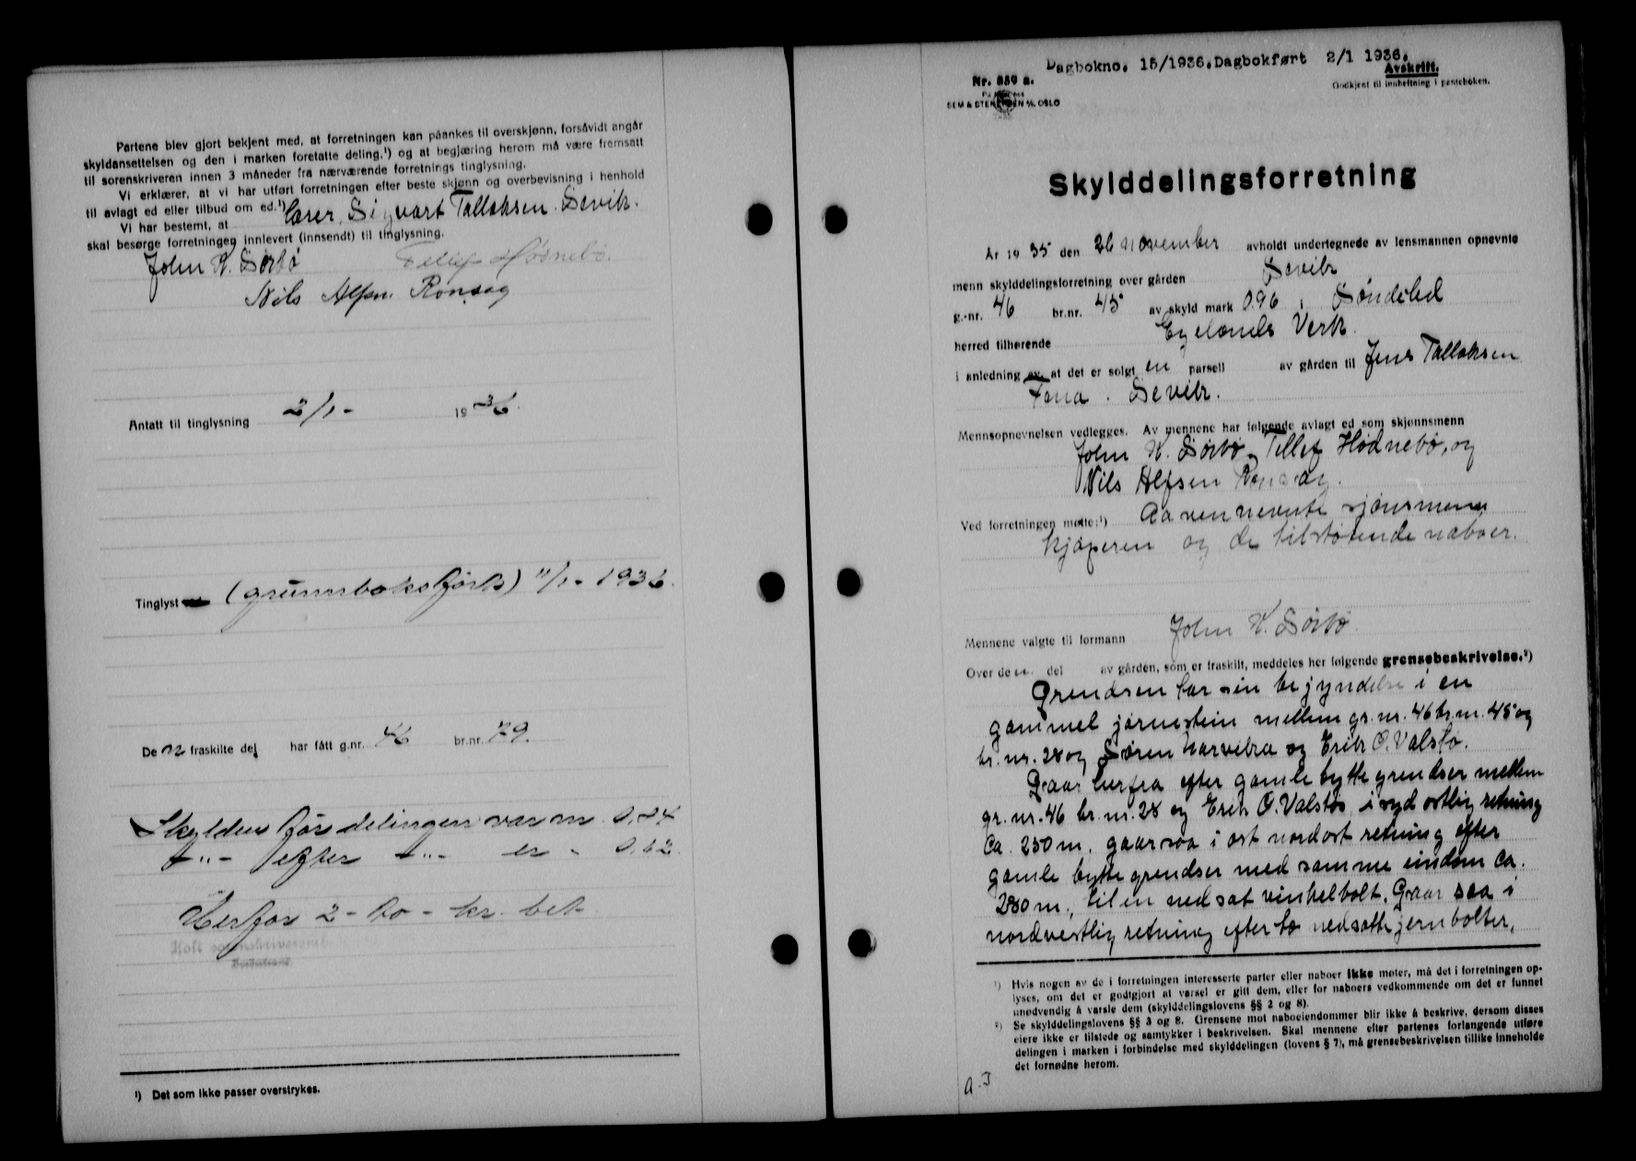 Partene blev gjort bekjent med, at forretningen kan påankes til overskjønn, forsåvidt angår
skyldansettelsen og den i marken foretatte deling,¹) og at begjæring herom må være fremsatt
til sorenskriveren innen 3 måneder fra nærværende forretnings tinglysning.
Vi erklærer, at vi har utført forretningen efter beste skjønn og overbevisning i henhold
til avlagt ed eller tilbud om ed.¹)
Vi har bestemt, at Sigvart Tallaksen Sevik.
skal besørge forretningen innlevert (innsendt) til tinglysning.
John K. Sørbø Tellef Hødnebø.
Nils Alfsen Rønsag
Antatt til tinglysning 2/1 - 1936.
Tinglyst (grunnboksført) 11/1 - 1936.
De n fraskilte del har fått g.nr. 46 br.nr. 79.
Skylden før delingen var m. 0,84
-"- efter -"- er - 0,62.
Herfor 2 - to - kr. bet.
¹) Det som ikke passer overstrykes.
Dagbokno. 15/1936. Dagbokført 2/1 1936.
Nr. 839 a.
Avskrift.
Godkjent til innheftning i panteboken.
SEM & STENERSEN A/S, OSLO
Skylddelingsforretning
År 1935 den 26 november avholdt undertegnede av lensmannen opnevnte
menn skylddelingsforretning over gården Sevik
g.-nr. 46 br.nr. 45 av skyld mark 0.96 i Søndeled
herred tilhørende Egelands Verk.
i anledning av at det er solgt en parsell av gården til Jens Tallaksen
Sevik.
Mennsopnevnelsen vedlegges. Av mennene har følgende avlagt ed som skjønnsmenn
John K. Sørbø, Tellef Hødnebø, og
Nils Alfsen Rønsag.
Ved forretningen møtte:¹) Aavennevnte sjønsmenn
kjøperen og de tilstøtende naboer.
Mennene valgte til formann John K. Sørbø.
Over de en del av gården, som er fraskilt, meddeles her følgende grensebeskrivelse.²)
Grendsen tar sin begjyndelse i en
gammel jarnstein mellem gr. nr. 46 br. nr. 45 og
br. nr. 28 og Søren Narvika og Erik O. Valstø.
Gaar herfra efter gamle bytte grendser mellem
gr. nr. 46 br. nr. 28 og Erik O. Valstøs i syd ostlig retning
Ca. 250 m. gaar saa i ost nordost retning efter
gamle bytte grendser med samme eindom ca.
280 m., til en nedsat vinkelbolt. Gaar saa i
nordvestlig retning efter to nedsatte jernbolter,
¹) Hvis nogen av de i forretningen interesserte parter eller naboer ikke møter, må det i forretningen op-
lyses, om det er godtgjort at varsel er gitt dem, eller for naboers vedkommende om det er funnet
unødvendig å varsle dem (skylddelingslovens §§ 2 og 8).
²) Se skylddelingslovens §§ 3 og 8. Grensene mot naboeiendommer blir ikke å beskrive, dersom disses
eiere ikke er tilstede og samtykker i beskrivelsen. Skal mennene efter partenes forlangende utføre
delingen i marken i forbindelse med skylddelingen (lovens § 7), må grensebeskrivelsen tillike inneholde
det fornødne herom.